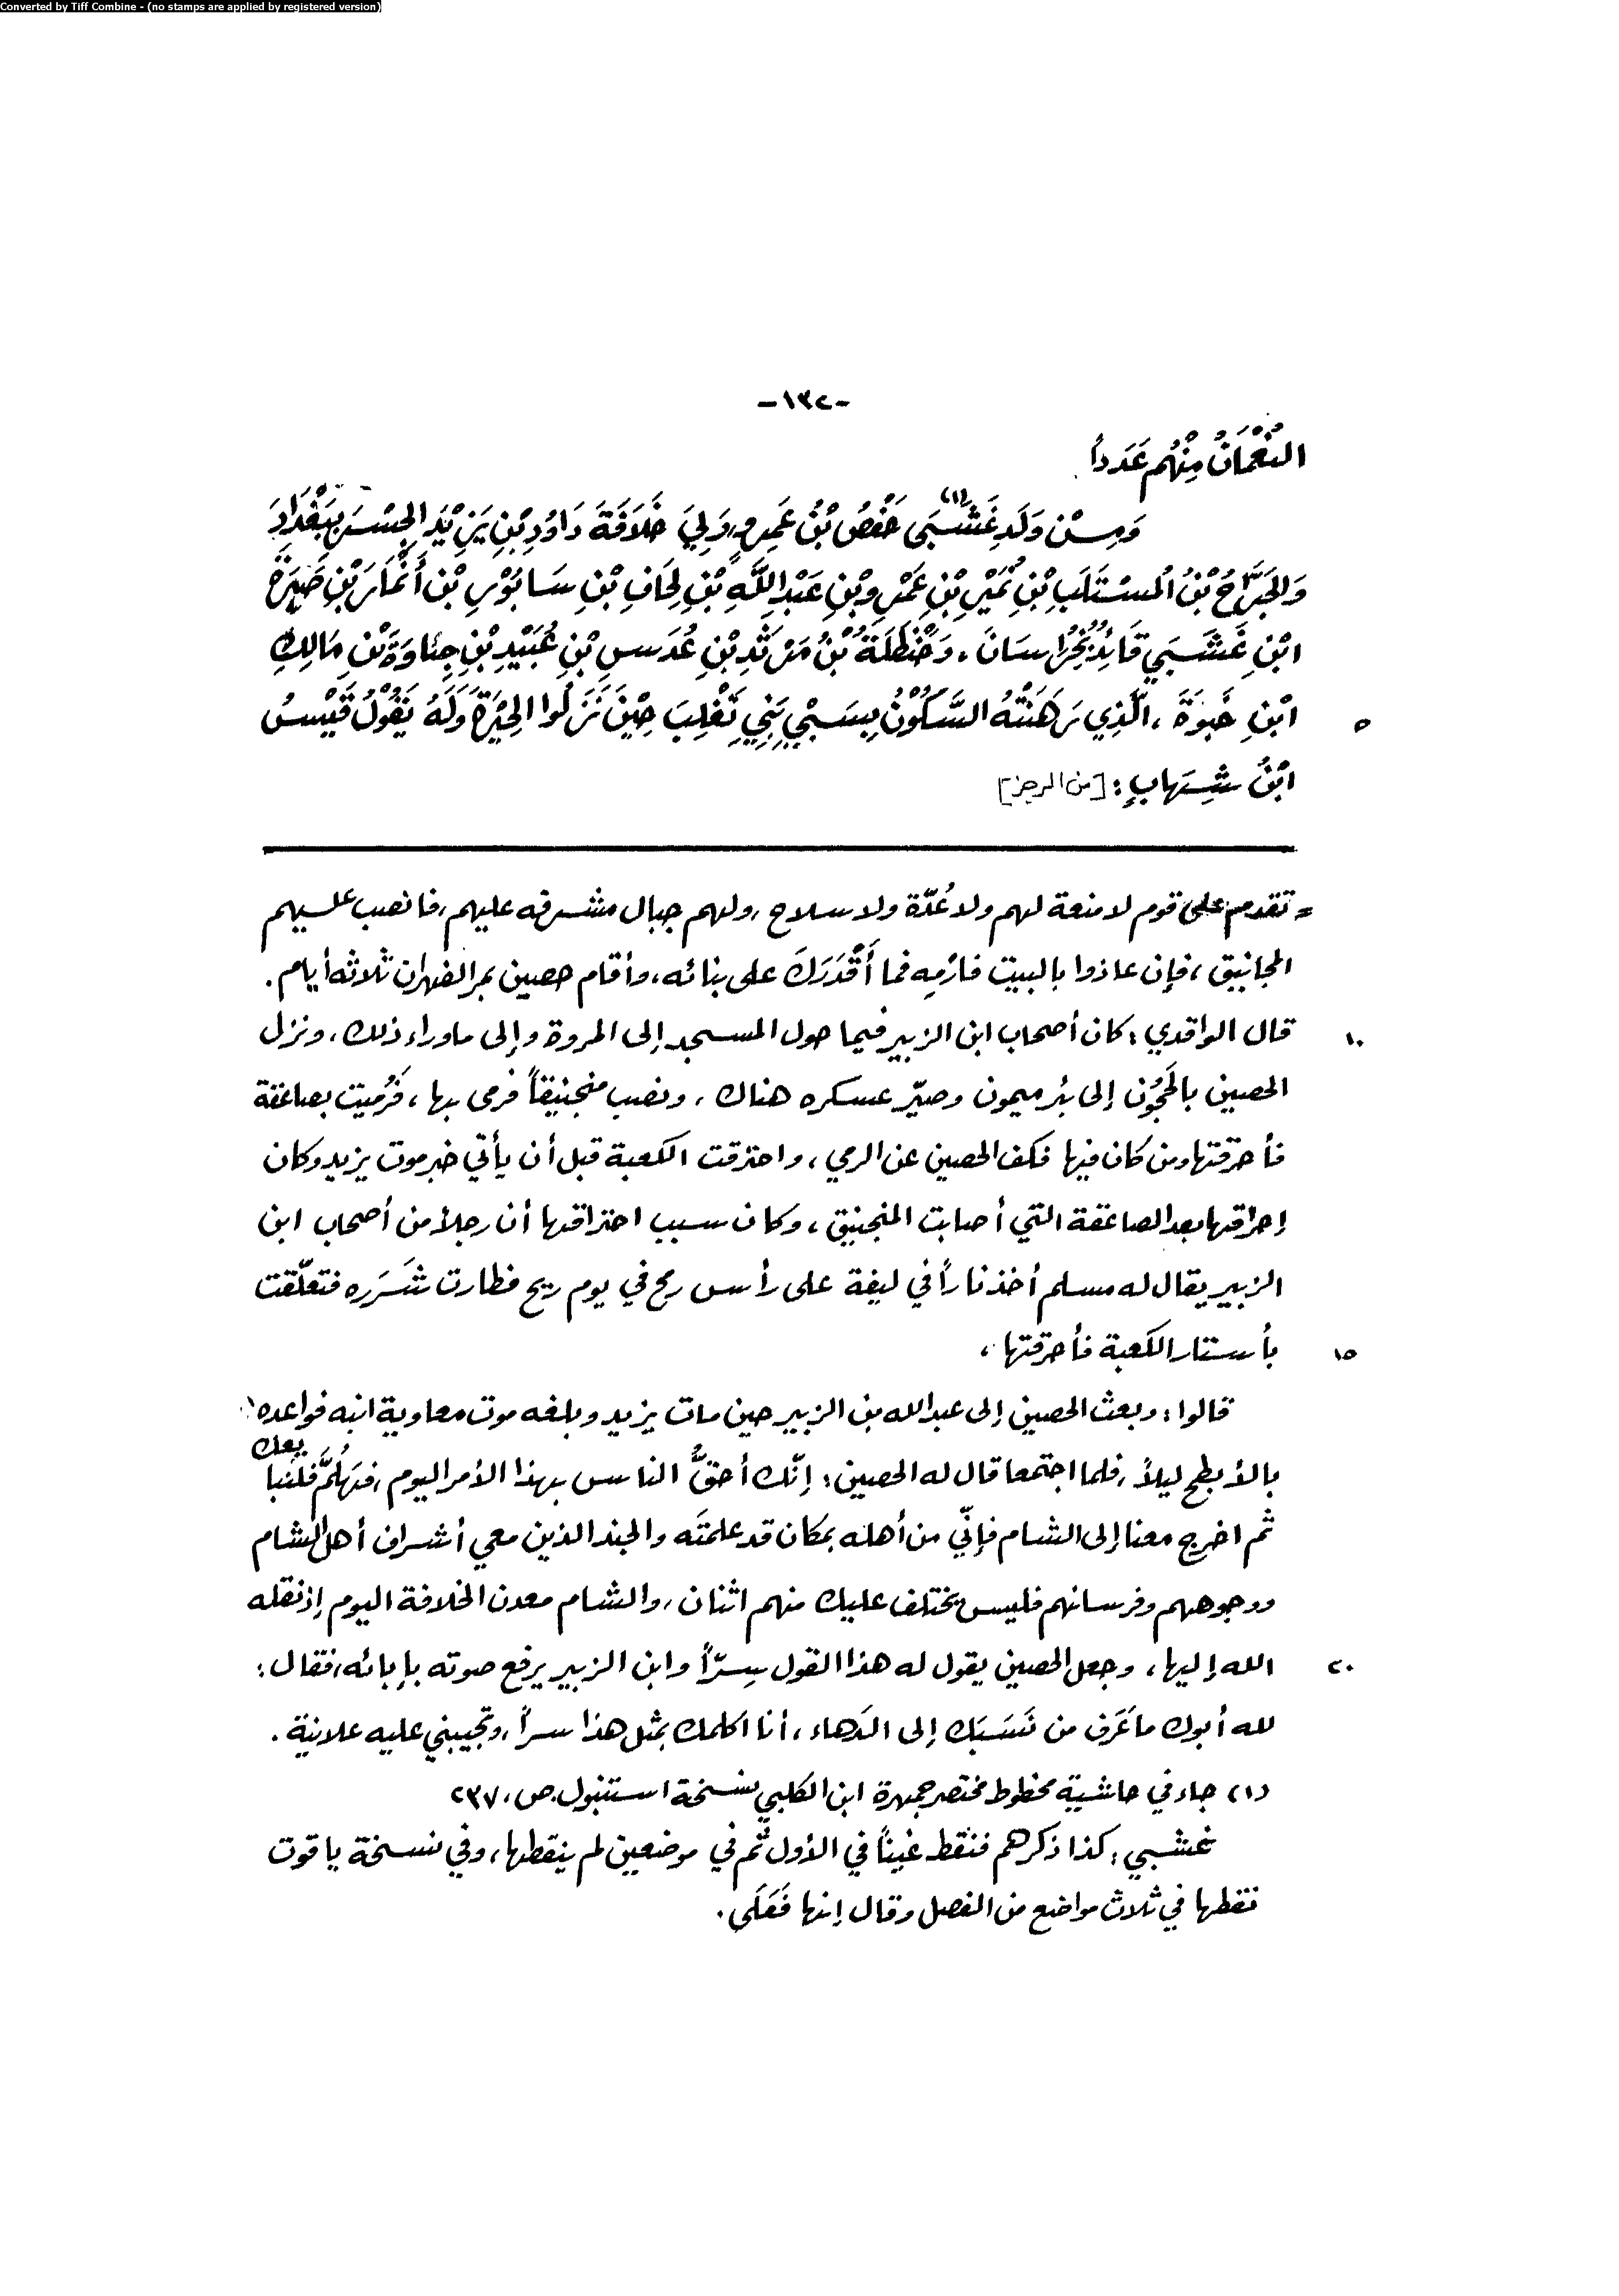 Converted by Tiff Combine - (no stamps are applied by registered version)
-١٣٢-
النُّعْمَانُ مِنْهُم عَدَداً
وَمِنْ وَلَدِ غَشْبَى (١) حَفْصُ بْنُ عَمِرٍو، وَلِيَ خَلَافَةَ دَاوُدِ بْنِ يَزِيْدَ الجِسْرَ بِبَغْدَادَ
وَالجَرَّاحُ بْنُ المُسْتَلَبِ بْنِ نُمَيْرِ بْنِ عَمْرِو بْنِ عَبْدِ اللَّهِ بْنِ لِحَافِ بْنِ سَابُوْسِ بْنِ أَنْمَارَ بْنِ ضَبِرَةَ
ابْنِ غَشَبِي قَائِدٌ بِخُرَاسَانَ، وَحَنْظَلَةُ بْنُ مَرْثَدِ بْنِ عُدَسِ بْنِ عُبَيْدِ بْنِ جِئَاوَةَ بْنِ مَالِكِ
٥ ابْنِ حَبْوَةَ، الَّذِي رَهَنَتْهُ السَّكُوْنُ بِسَبْيِ بَنِي تَغْلِبَ حِيْنَ نَزَلُوا الحِيْرَةَ وَلَهُ يَقُوْلُ قَيْسُ
ابْنُ شِهَابٍ: [من الرجز]
= تقدم على قوم لا منعة لهم ولا عُدّة ولا سلاح، ولهم جبال مشرفه عليهم، فانصب عليهم
المجانيق، فإن عاذوا بالبيت فارمِه فما أَقْدَرَكَ على بنائه، وأقام حصين بمر الظهران ثلاثه أيام.
١٠ قال الواقدي: كان أصحاب ابن الزبير فيما حول المسجد إلى المروة وإلى ماوراء ذلك، ونزل
الحصين بالحَجُون إلى بئر ميمون وصيّر عسكره هناك، ونصب منجنيقاً فرمى بها، فَرُميت بصاعقة
فأحرقتها ومن كان فيها فكف الحصين عن الرمي، واحترقت الكعبة قبل أن يأتي خبر موت يزيد وكان
إحراقها بعد الصاعقة التي أصابت المنجنيق، وكان سبب احتراقها أن رجلاً من أصحاب ابن
الزبير يقال له مسلم أخذ ناراً في ليفة على رأس رمح في يوم ريح فطارت شَرَره فتعلّقت
١٥ بأستار الكعبة فأحرقتها،
قالوا: وبعث الحصين إلى عبدالله بن الزبير حين مات يزيد وبلغه موت معاوية ابنه فواعده
بالأبطح ليلاً، فلما اجتمعا قال له الحصين: إنّك أحقُّ الناس بهذا الأمر اليوم، فهَلُمَّ فلنبايعك
ثم اخرج معنا إلى الشام فإنّي من أهله بمكان قد علمتَه والجند الذين معي أشراف أهل الشام
ووجوههم وفرسانهم فليس يختلف عليك منهم اثنان، والشام معدن الخلافة اليوم إذ نقله
٢٠ الله إليها، وجعل الحصين يقول له هذا القول سِرّاً وابن الزبير يرفع صوته بإبائه، فقال:
لله أبوك ما عَرَف من نَسَبَك إلى الدَهاء، أنا اكلمك بمثل هذا سراً، وتجيبني عليه علانية.
(١) جاء في حاشية مخطوط مختصر جمهرة ابن الكلبي نسخة استنبول.ص، ٢٣٧
غشبي: كذا ذكرهم فنقط غيناً في الأول ثم في موضعين لم ينقطها، وفي نسخة ياقوت
نقطها في ثلاث مواضع من الفصل وقال إنها فَعَلَى.